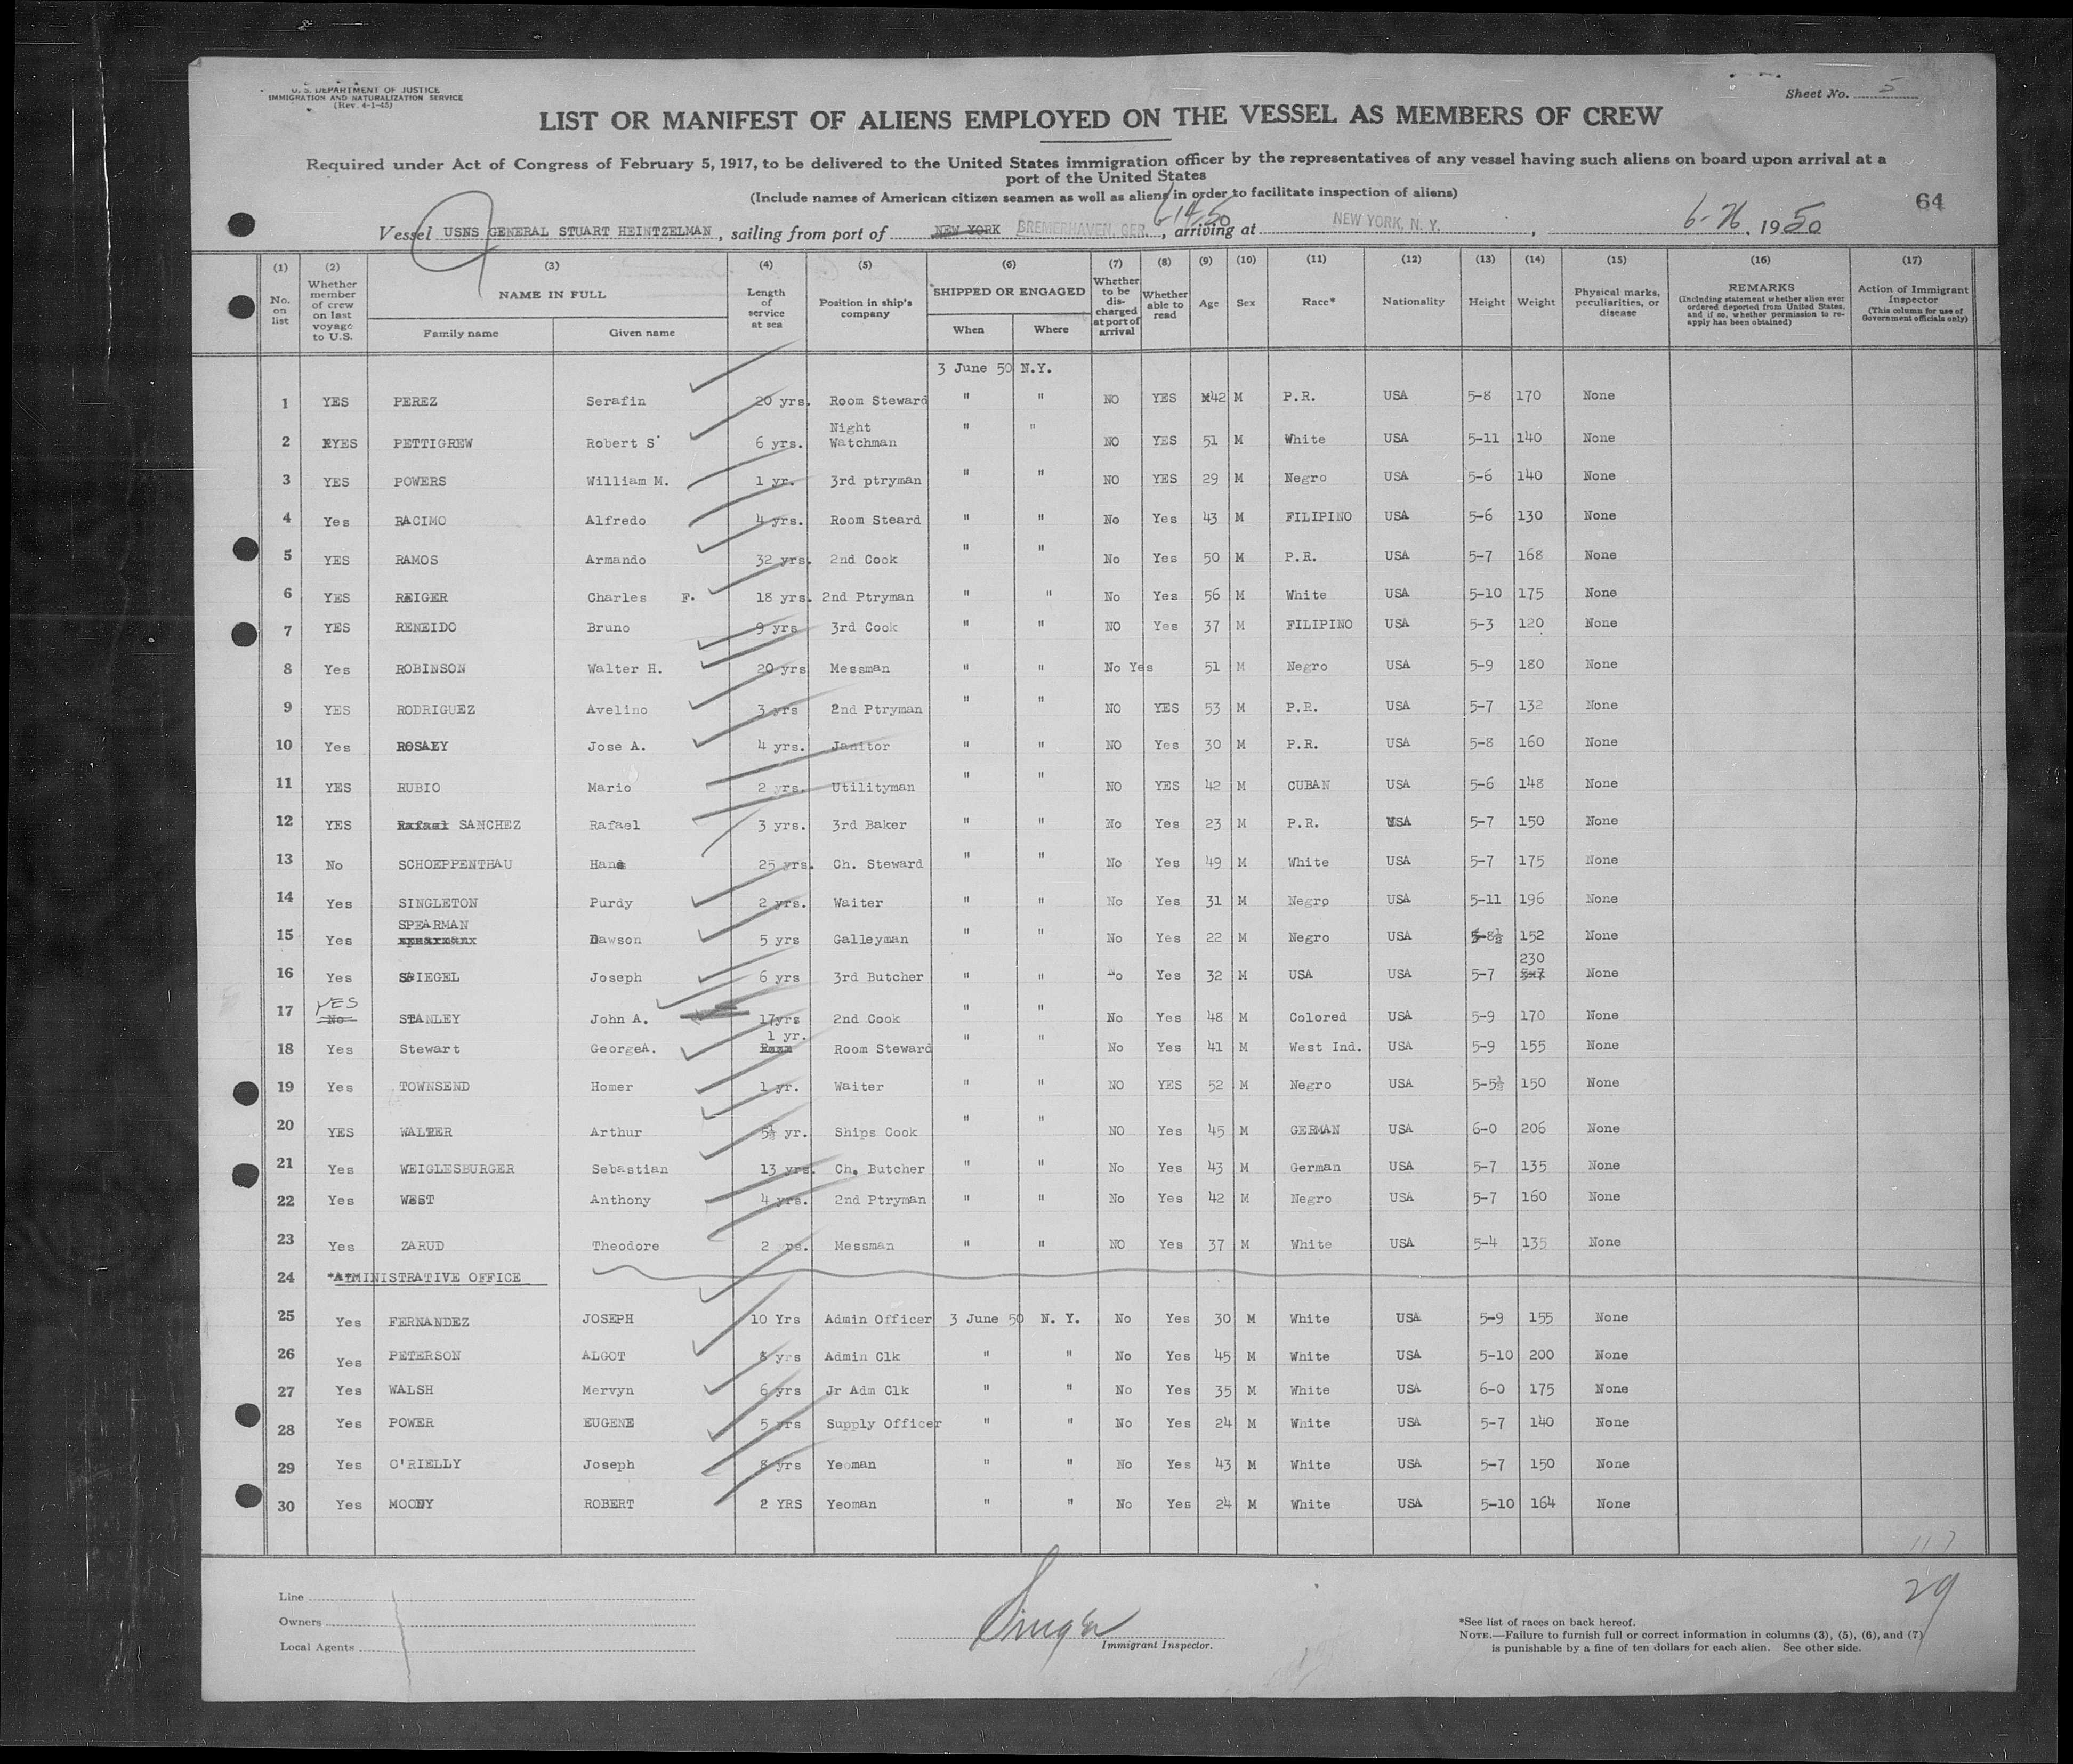 U. S. DEPARTMENT OF JUSTICE
IMMIGRATION AND NATURALIZATION SERVICE
(Rev. 4-1-45)
Sheet No. 5
LIST OR MANIFEST OF ALIENS EMPLOYED ON THE VESSEL AS MEMBERS OF CREW
Required under Act of Congress of February 5, 1917, to be delivered to the United States immigration officer by the representatives of any vessel having such aliens on board upon arrival at a
port of the United States
(Include names of American citizen seamen as well as aliens in order to facilitate inspection of aliens)
64
Vessel USNS GENERAL STUART HEINTZELMAN, sailing from port of NEW YORK BREMERHAVEN, GER. 6-14-50, arriving at NEW YORK, N. Y., 6-26, 1950
(1) (2) (3) (4) (5) (6) (7) (8) (9) (10) (11) (12) (13) (14) (15) (16) (17)
No. on list
Whether member of crew on last voyage to U.S.
NAME IN FULL
Family name
Given name
Length of service at sea
Position in ship's company
SHIPPED OR ENGAGED
When
Where
Whether to be discharged at port of arrival
Whether able to read
Age
Sex
Race*
Nationality
Height
Weight
Physical marks, peculiarities, or disease
REMARKS
(Including statement whether alien ever ordered deported from United States, and if so, whether permission to reapply has been obtained)
Action of Immigrant Inspector
(This column for use of Government officials only)
3 June 50 N.Y.
1 YES PEREZ Serafin 20 yrs. Room Steward " " NO YES 42 M P.R. USA 5-8 170 None
Night
2 YES PETTIGREW Robert S 6 yrs. Watchman " " NO YES 51 M White USA 5-11 140 None
3 YES POWERS William M. 1 yr. 3rd ptryman " " NO YES 29 M Negro USA 5-6 140 None
4 Yes RACIMO Alfredo 4 yrs. Room Steard " " No Yes 43 M FILIPINO USA 5-6 130 None
5 YES RAMOS Armando 32 yrs. 2nd Cook " " No Yes 50 M P.R. USA 5-7 168 None
6 YES REIGER Charles F. 18 yrs. 2nd Ptryman " " No Yes 56 M White USA 5-10 175 None
7 YES RENEIDO Bruno 9 yrs 3rd Cook " " NO Yes 37 M FILIPINO USA 5-3 120 None
8 Yes ROBINSON Walter H. 20 yrs Messman " " No Yes 51 M Negro USA 5-9 180 None
9 YES RODRIGUEZ Avelino 3 yrs 2nd Ptryman " " NO YES 53 M P.R. USA 5-7 132 None
10 Yes Jose A. 4 yrs. Janitor " " NO Yes 30 M P.R. USA 5-8 160 None
11 YES RUBIO Mario 2 yrs. Utilityman " " NO YES 42 M CUBAN USA 5-6 148 None
12 YES Rafael SANCHEZ Rafael 3 yrs. 3rd Baker " " No Yes 23 M P.R. USA 5-7 150 None
13 No SCHOEPPENTHAU Hans 25 yrs. Ch. Steward " " No Yes 49 M White USA 5-7 175 None
14 Yes SINGLETON Purdy 2 yrs. Waiter " " No Yes 31 M Negro USA 5-11 196 None
SPEARMAN
15 Yes Dawson 5 yrs Galleyman " " No Yes 22 M Negro USA 5-8½ 152 None
230
16 Yes SPIEGEL Joseph 6 yrs 3rd Butcher " " No Yes 32 M USA USA 5-7 5-7 None
YES
17 No STANLEY John A. 17yrs 2nd Cook " " No Yes 48 M Colored USA 5-9 170 None
1 yr.
18 Yes Stewart GeorgeA. Room Steward " " No Yes 41 M West Ind. USA 5-9 155 None
19 Yes TOWNSEND Homer 1 yr. Waiter " " NO YES 52 M Negro USA 5-5½ 150 None
20 YES WALTER Arthur 5½ yr. Ships Cook " " NO Yes 45 M GERMAN USA 6-0 206 None
21 Yes WEIGLESBURGER Sebastian 13 yrs. Ch. Butcher " " No Yes 43 M German USA 5-7 135 None
22 Yes WEST Anthony 4 yrs. 2nd Ptryman " " No Yes 42 M Negro USA 5-7 160 None
23 Yes ZARUD Theodore 2 rs. Messman " " NO Yes 37 M White USA 5-4 135 None
24 *ADMINISTRATIVE OFFICE
25 Yes FERNANDEZ JOSEPH 10 Yrs Admin Officer 3 June 50 N. Y. No Yes 30 M White USA 5-9 155 None
26 Yes PETERSON ALGOT 8 yrs Admin Clk " " No Yes 45 M White USA 5-10 200 None
27 Yes WALSH Mervyn 6 yrs Jr Adm Clk " " No Yes 35 M White USA 6-0 175 None
28 Yes POWER EUGENE 5 yrs Supply Officer " " No Yes 24 M White USA 5-7 140 None
29 Yes O'RIELLY Joseph 8 yrs Yeoman " " No Yes 43 M White USA 5-7 150 None
30 Yes MOODY ROBERT 2 YRS Yeoman " " No Yes 24 M White USA 5-10 164 None
117
29
Line
Owners
Local Agents
Singer
Immigrant Inspector.
*See list of races on back hereof.
NOTE.—Failure to furnish full or correct information in columns (3), (5), (6), and (7)
is punishable by a fine of ten dollars for each alien. See other side.